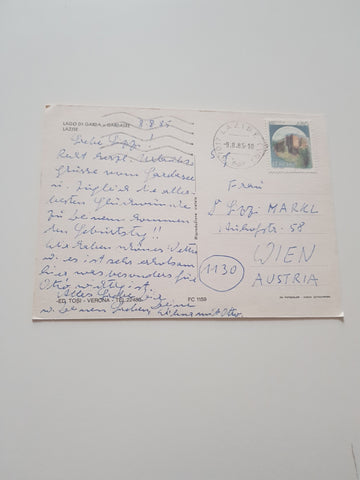 LAGO DI GARDA - GARDASEE
LAZISE
8.8.85
Liebe Lizzi!
Recht herzl. Urlaubs
grüsse vom Gardasee
u. zugleich die aller-
besten Glückwünsche
zu deinem kommen
den Geburtstag!!
Wir haben schönes Wetter
u. es ist sehr erholsam
hier was besonders für
Otto wichtig ist.
Alles Liebe
ED. TOSI - VERONA - TEL.
FC 1159
LAZISE
9.8.85
Frau
Lizzi MARKL
58
WIEN
1130
AUSTRIA